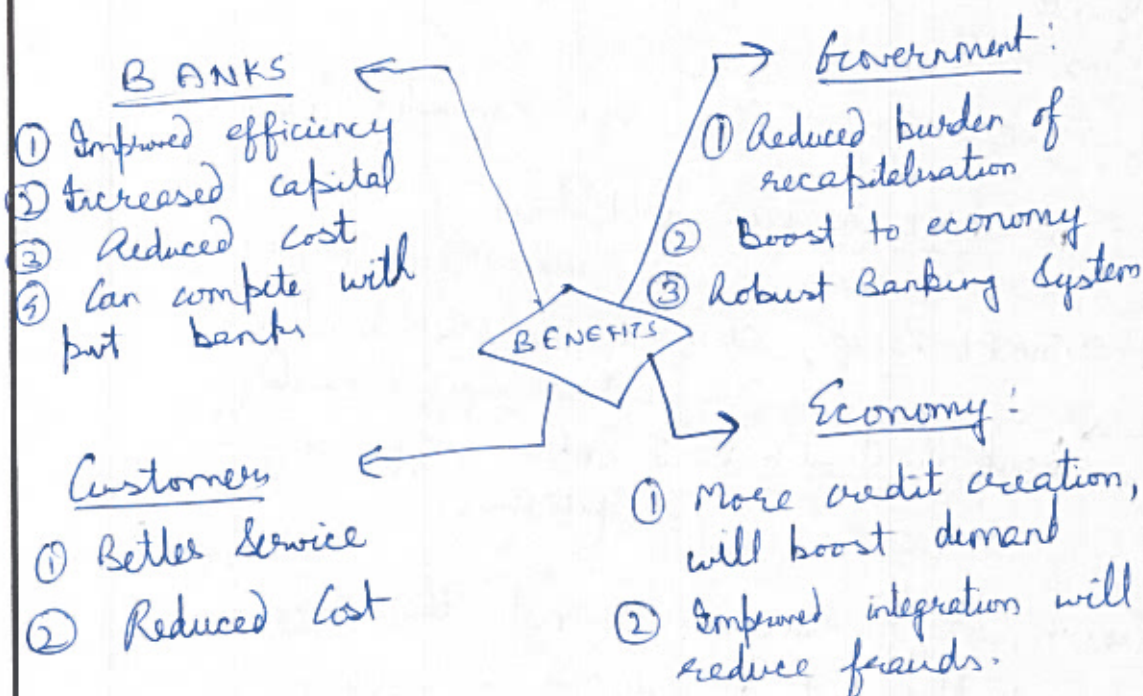 BANKS
① Improved efficiency
② Increased capital
③ Reduced cost
④ Can compete with
pvt banks
Government:
① Reduced burden of
recapitalisation
② Boost to economy
③ Robust Banking System
BENEFITS
Customers
① Better Service
② Reduced Cost
Economy:
① More credit creation,
will boost demand
② Improved integration will
reduce frauds.